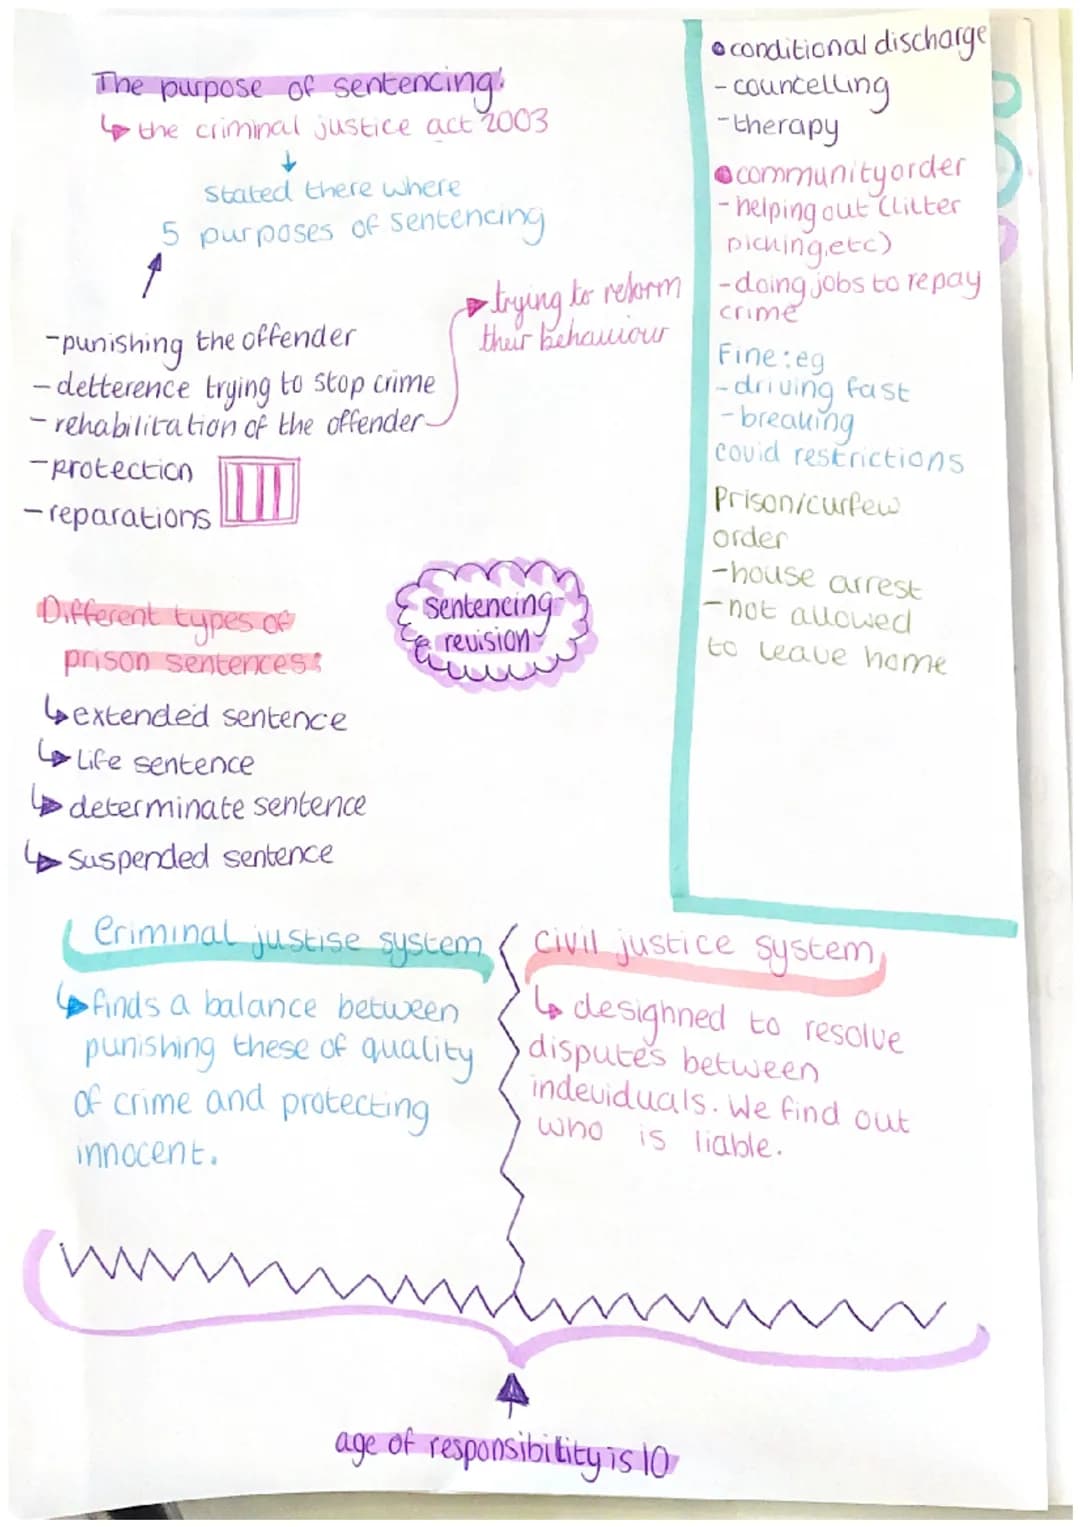 The purpose of sentencing:
the criminal justice act 2003
stated there where
5 purposes of sentencing
-punishing the offender
- detterence trying to stop crime
- rehabilitation of the offender
trying to reform
their behaviour
-protection
-reparations
Different types of
prison sentences:
extended sentence
Life sentence
determinate sentence
suspended sentence
sentencing
revision
conditional discharge
- councelling
-therapy
community order
- helping out (litter
picking, etc)
- doing jobs to repay
crime
Fine: eg
- driving fast
- breaking
covid restrictions
Prison/curfew
order
-house arrest
-not allowed
to leave home
Criminal justise system
finds a balance between
punishing these of quality
of crime and protecting
innocent.
civil justice system
desighned to resolve
disputes between
indeviduals. We find out
who is liable.
age of responsibility is 10